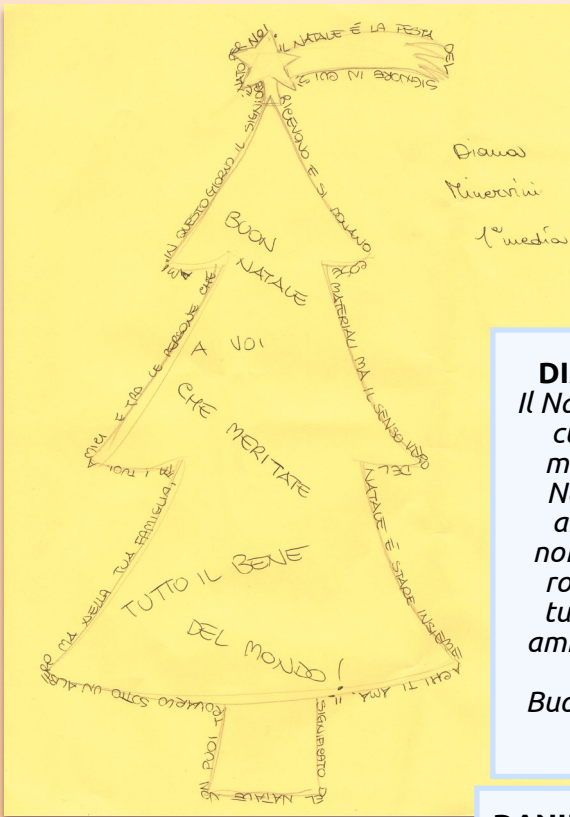 IL NATALE È LA FESTA
DEL
SIGNORE IN CUI SI
RICEVONO E SI DONANO
COSE
MATERIALI MA IL SENSO VERO
DEL
NATALE È STARE INSIEME
A CHI TI AMA. IL
SIGNIFICATO
DEL NATALE NO
N PUOI
TROVARLO SOTTO UN ALBE
RO MA NELLA TUA FAMIGLIA,
TRA I TUOI
AMICI E TRA LE PERSONE CHE
AMI.
IN QUESTO GIORNO IL
È NATO PER NOI
BUON
NATALE
A VOI
CHE MERITATE
TUTTO IL BENE
DEL MONDO!
Diana
Minervini
1ª media
DI
Il Na
cu
m
N
a
non
ro
tu
ami
Buo
DANI